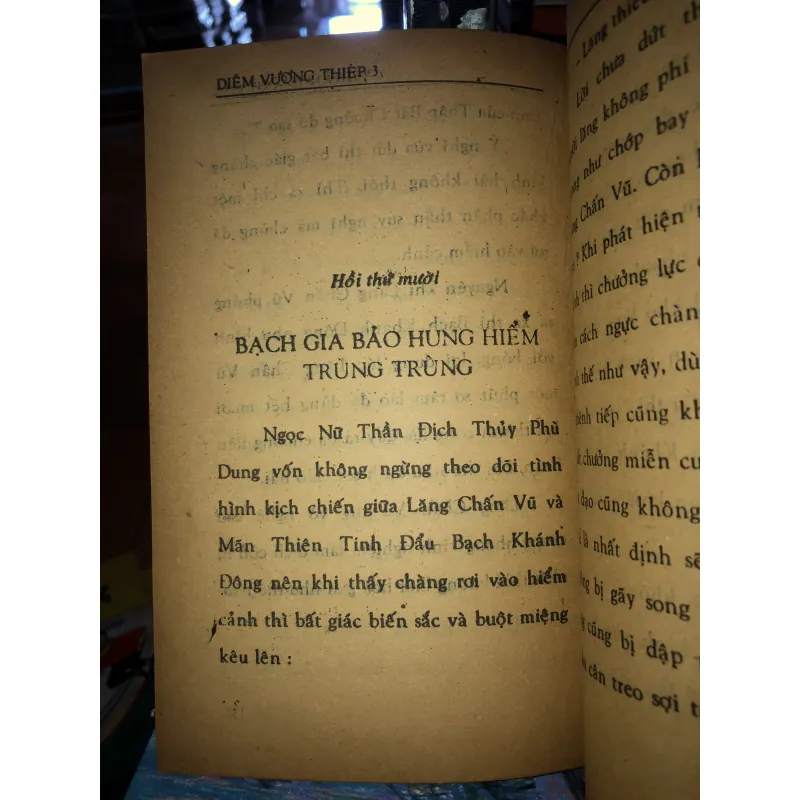 DIÊM VƯƠNG THIẾP 3
Hồi thứ mười
BẠCH GIA BẢO HUNG HIỂM
TRÙNG TRÙNG
Ngọc Nữ Thần Địch Thủy Phù
Dung vốn không ngừng theo dõi tình
hình kịch chiến giữa Lăng Chấn Vũ và
Mãn Thiên Tinh Đẩu Bạch Khánh
Đông nên khi thấy chàng rơi vào hiểm
cảnh thì bất giác biến sắc và buột miệng
kêu lên :
- Lăng thiếu
Lời chưa dứt th
lăng không phí
như chớp bay
Chấn Vũ. Còn
? Khi phát hiện
thì chưởng lực
cách ngực chàn
thế như vậy, dù
tiếp cũng kh
chưởng miễn cư
đạo cũng không
là nhất định sẽ
bị gãy song
cũng bị dập
cân treo sợi t